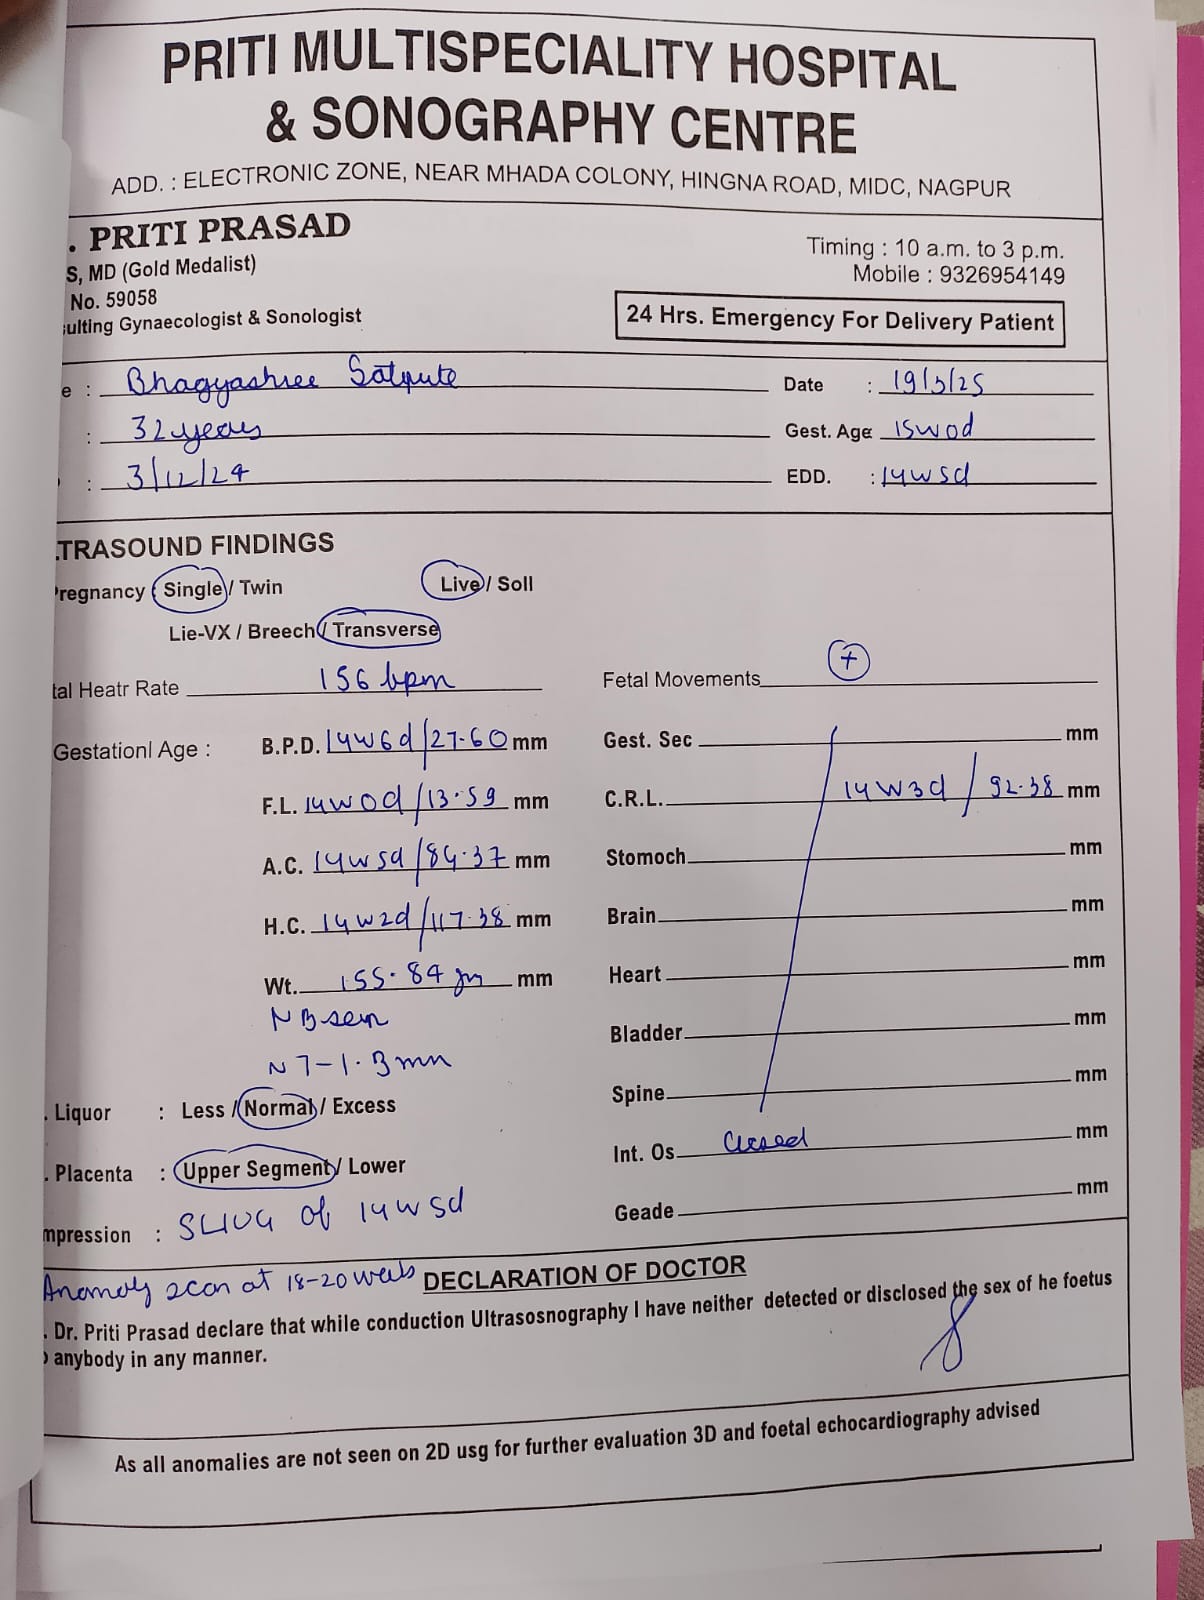 PRITI MULTISPECIALITY HOSPITAL
& SONOGRAPHY CENTRE
ADD. : ELECTRONIC ZONE, NEAR MHADA COLONY, HINGNA ROAD, MIDC, NAGPUR
. PRITI PRASAD
S, MD (Gold Medalist)
No. 59058
sulting Gynaecologist & Sonologist
Timing : 10 a.m. to 3 p.m.
Mobile : 9326954149
24 Hrs. Emergency For Delivery Patient
e : Bhagyashree Satpute
Date : 19/3/25
: 32 years
Gest. Age 15w0d
: 3/12/24
EDD. : 14w5d
TRASOUND FINDINGS
Pregnancy Single / Twin Live / Soll
Lie-VX / Breech / Transverse
tal Heatr Rate 156 bpm
Fetal Movements +
Gestationl Age : B.P.D. 14w6d/27.60 mm
Gest. Sec mm
F.L. 14w0d/13.59 mm
C.R.L. 14w3d/92.38 mm
A.C. 14w5d/84.37 mm
Stomoch mm
H.C. 14w2d/117.38 mm
Brain mm
Wt. 155.84 gm mm
Heart mm
NB seen
Bladder mm
NT-1.3mm
Spine mm
. Liquor : Less / Normal / Excess
Int. Os Closed mm
. Placenta : Upper Segment / Lower
Geade mm
mpression : SLIUG of 14w5d
Anomaly scan at 18-20 weeks
DECLARATION OF DOCTOR
. Dr. Priti Prasad declare that while conduction Ultrasosnography I have neither detected or disclosed the sex of he foetus
anybody in any manner.
As all anomalies are not seen on 2D usg for further evaluation 3D and foetal echocardiography advised